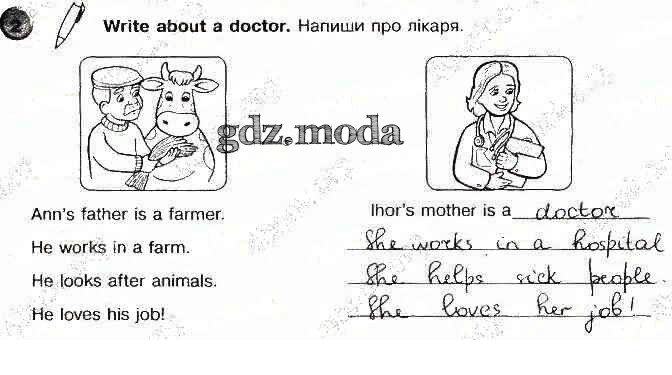 2 Write about a doctor. Напиши про лікаря.
gdz.moda
Ann's father is a farmer.
He works in a farm.
He looks after animals.
He loves his job!
Ihor's mother is a doctor
She works in a hospital
She helps sick people.
She loves her job!